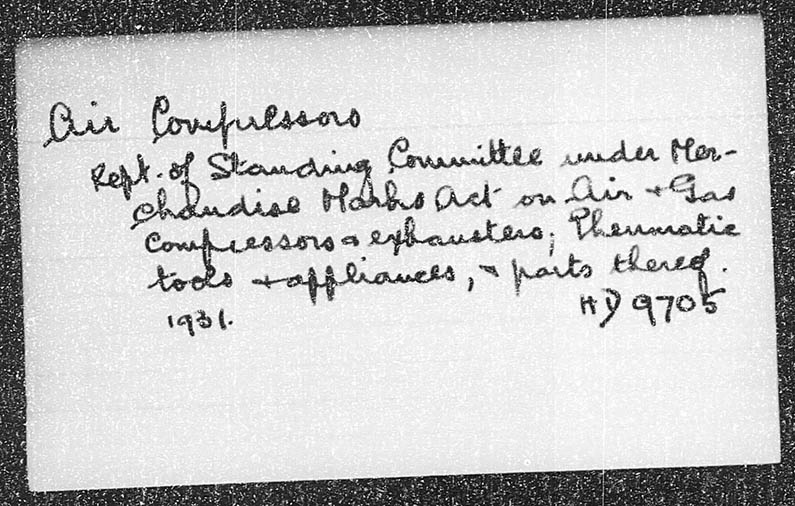 Air Compressors
Rept. of Standing Committee under Mer-
chandise Marks Act on Air + Gas
Compressors + exhausters; Pneumatic
tools + appliances, + parts thereof.
1931. HD 9705